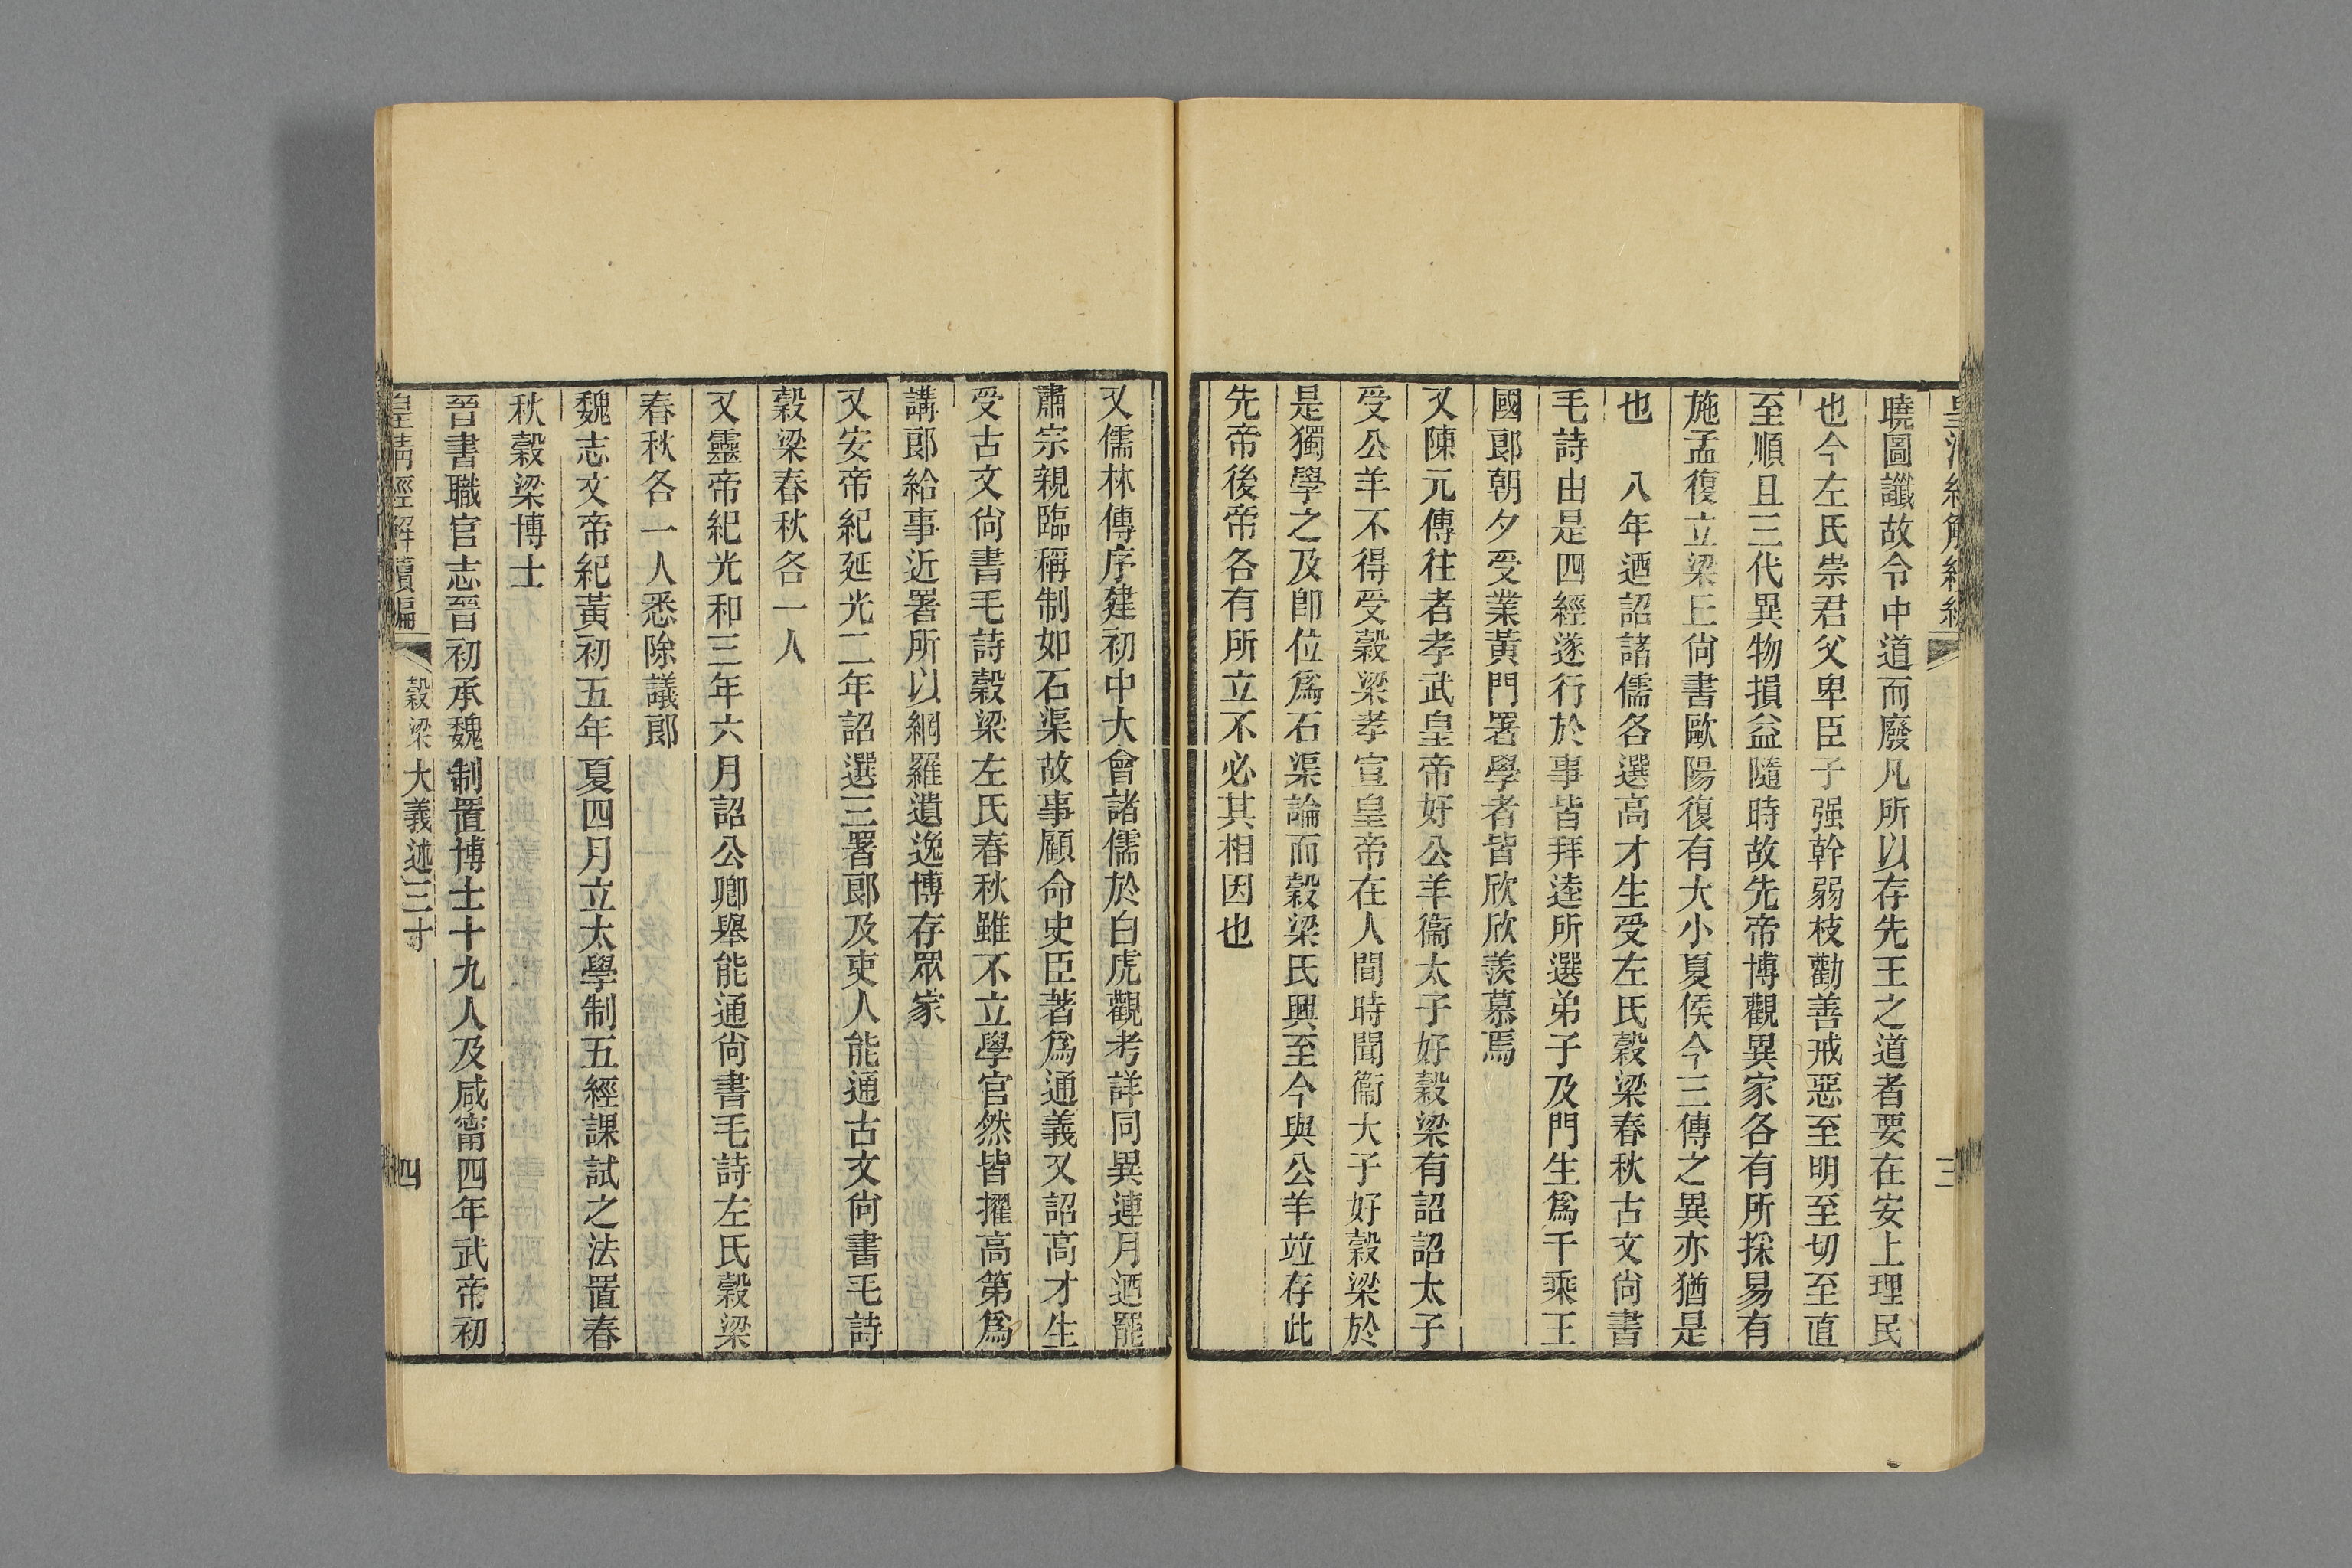 曉圖讖故令中道而廢凡所以存先王之道者要在安上理民
也今左氏崇君父卑臣子强幹弱枝勸善戒惡至明至切至直
至順且三代異物損益隨時故先帝博觀異家各有所採易有
施孟復立梁丘尙書歐陽復有大小夏侯今三傳之異亦猶是
也　八年迺詔諸儒各選高才生受左氏穀梁春秋古文尙書
毛詩由是四經遂行於事皆拜逵所選弟子及門生爲千乘王
國郎朝夕受業黃門署學者皆欣欣羨慕焉
又陳元傳往者孝武皇帝好公羊衞太子好穀梁有詔詔太子
受公羊不得受穀梁孝宣皇帝在人間時聞衞大子好穀梁於
是獨學之及卽位爲石渠論而穀梁氏興至今與公羊竝存此
先帝後帝各有所立不必其相因也
三
又儒林傳序建初中大會諸儒於白虎觀考詳同異連月迺罷
肅宗親臨稱制如石渠故事顧命史臣著爲通義又詔高才生
受古文尙書毛詩穀梁左氏春秋雖不立學官然皆擢高第爲
講郎給事近署所以網羅遺逸博存眾家
又安帝紀延光二年詔選三署郎及吏人能通古文尙書毛詩
穀梁春秋各一人
又靈帝紀光和三年六月詔公卿舉能通尙書毛詩左氏穀梁
春秋各一人悉除議郎
魏志文帝紀黃初五年夏四月立太學制五經課試之法置春
秋穀梁博士
晉書職官志晉初承魏制置博士十九人及咸甯四年武帝初
皇清經解續編　穀梁大義述三十　四